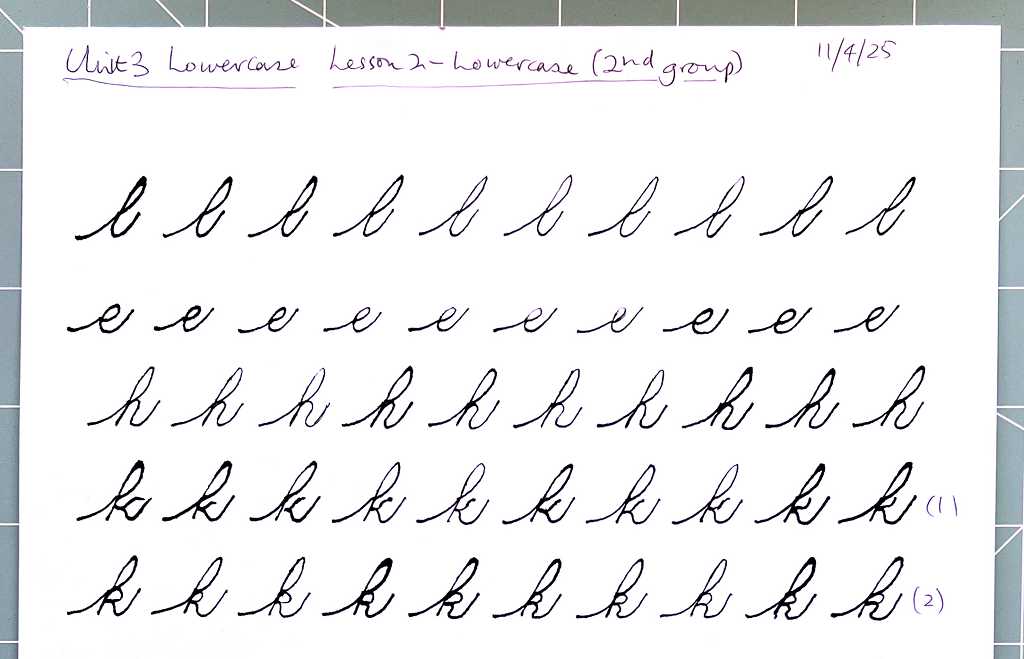 Unit 3 Lowercase Lesson 2 - Lowercase (2nd group) 11/4/25
l l l l l l l l l l
e e e e e e e e e e
h h h h h h h h h h
k k k k k k k k k k (1)
k k k k k k k k k k (2)